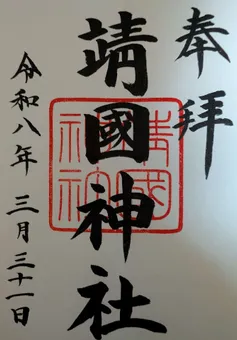 奉拝
靖國神社
靖國神社
令和八年 三月三十一日